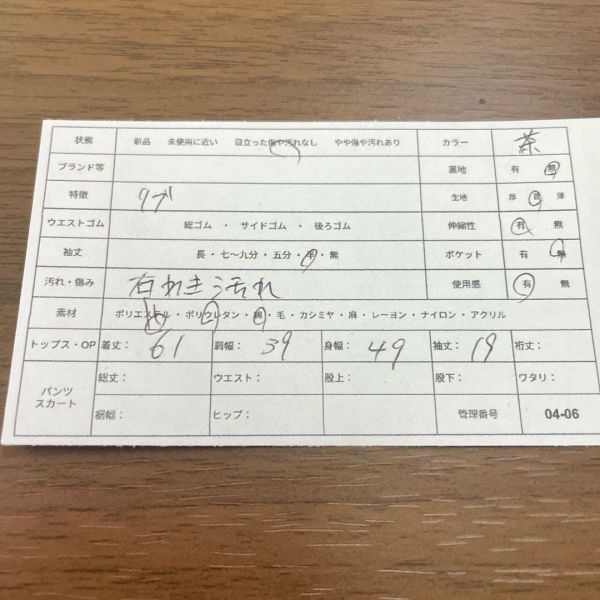 状態 新品 未使用に近い 目立った傷や汚れなし やや傷や汚れあり カラー 茶
ブランド等 裏地 有 無
特徴 リブ 生地 厚 普 薄
ウエストゴム 総ゴム ・ サイドゴム ・ 後ろゴム 伸縮性 有 無
袖丈 長・七〜九分・五分・半・無 ポケット 有 無
汚れ・傷み 右わき汚れ 使用感 有 無
素材 ポリエステル・ポリウレタン・綿・毛・カシミヤ・麻・レーヨン・ナイロン・アクリル
トップス・OP 着丈: 61 肩幅: 39 身幅: 49 袖丈: 19 裄丈:
パンツ スカート 総丈: ウエスト: 股上: 股下: ワタリ:
裾幅: ヒップ: 管理番号 04-06